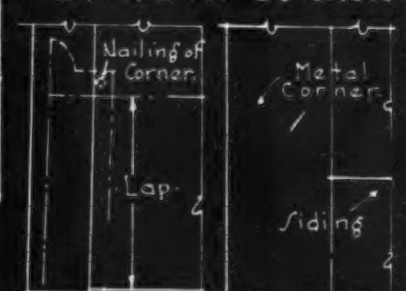 Nailing of
Corner
Lap
Metal
Corner
Siding